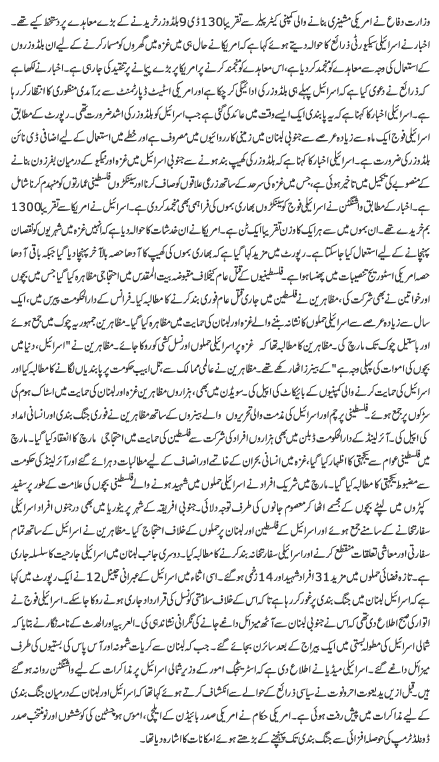 وزارت دفاع نے امریکی مشینری بنانے والی کمپنی کیٹرپلر سے تقریباً 130 ڈی 9 بلڈوزر خریدنے کے بڑے معاہدے پر دستخط کیے تھے۔
اخبار نے اسرائیلی سیکیورٹی ذرائع کا حوالہ دیتے ہوئے کہا ہے کہ امریکا نے حال ہی میں غزہ میں گھروں کو مسمار کرنے کے لیے ان بلڈوزروں
کے استعمال کی وجہ سے معاہدے کو منجمد کر دیا ہے، اس معاہدے کو منجمد کرنے پر امریکا میں بڑے پیمانے پر تنقید کی جا رہی ہے۔ اخبار نے لکھا ہے
کہ ذرائع نے دعویٰ کیا ہے کہ اسرائیل پہلے ہی بلڈوزر کی ادائیگی کر چکا ہے اور امریکی اسٹیٹ ڈپارٹمنٹ سے برآمدی منظوری کا انتظار کر رہا
ہے۔ اسرائیلی اخبار کا کہنا ہے کہ یہ پابندی ایک ایسے وقت میں عائد کی گئی ہے جب اسرائیل کو بلڈوزر کی اشد ضرورت تھی۔ رپورٹ کے مطابق
اسرائیلی فوج ایک ماہ سے زیادہ عرصے سے جنوبی لبنان میں زمینی کارروائیوں میں مصروف ہے اور خطے میں استعمال کے لیے اضافی ڈی نائن
بلڈوزر کی ضرورت ہے۔ اسرائیلی اخبار کا کہنا ہے کہ بلڈوزر کی کھیپ بند ہونے سے جنوبی اسرائیل میں غزہ اور نیگیو کے درمیان بفر زون بنانے
کے منصوبے کی تکمیل میں تاخیر ہوئی ہے، جس میں غزہ کی سرحد کے ساتھ زرعی علاقوں کو صاف کرنا اور سینکڑوں فلسطینی عمارتوں کو منہدم کرنا شامل
ہے۔ اخبار کے مطابق واشنگٹن نے اسرائیلی فوج کو سینکڑوں بھاری بموں کی فراہمی بھی منجمد کر دی ہے۔ اسرائیل نے امریکا سے تقریباً 1300
بم خریدے تھے۔ ان بموں میں سے ہر ایک کا وزن تقریباً ایک ٹن ہے۔ امریکا نے ان خدشات کا حوالہ دیا ہے کہ انہیں شہریوں کو نقصان
پہنچانے کے لیے استعمال کیا جا سکتا ہے۔ رپورٹ میں مزید کہا گیا ہے کہ بھاری بموں کی کھیپ کا آدھا حصہ بالآخر پہنچا دیا گیا جبکہ باقی آدھا
حصہ امریکی اسٹوریج تنصیبات میں پھنسا ہوا ہے۔ فلسطینیوں کے قتل عام کیخلاف مقبوضہ بیت المقدس میں احتجاجی مظاہرہ کیا گیا جس میں بچوں
اور خواتین نے بھی شرکت کی، مظاہرین نے فلسطین میں جاری قتل عام فوری بند کرنے کا مطالبہ کیا۔ فرانس کے دارالحکومت پیرس میں، ایک
سال سے زیادہ عرصے سے اسرائیلی حملوں کا نشانہ بننے والے غزہ اور لبنان کی حمایت میں مظاہرہ کیا گیا۔ مظاہرین جمہوریہ چوک میں جمع ہوئے
اور باستیل چوک تک مارچ کی۔ مظاہرین کا مطالبہ تھا کہ غزہ پر اسرائیلی حملوں اور نسل کشی کو روکا جائے۔ مظاہرین نے "اسرائیل، دنیا میں
بچوں کی اموات کی پہلی وجہ ہے" کے بینرز اٹھا رکھے تھے۔ مظاہرین نے عالمی ممالک سے تل ابیب حکومت پر پابندیاں لگانے کا مطالبہ کیا اور
اسرائیل کی حمایت کرنے والی کمپنیوں کے بائیکاٹ کی اپیل کی۔ سویڈن میں بھی، ہزاروں مظاہرین غزہ اور لبنان کی حمایت میں اسٹاک ہوم کی
سڑکوں پر جمع ہوئے۔ فلسطینی پرچم اور اسرائیل کی مذمت والی تحریروں والے بینروں کے ساتھ مظاہرین نے فوری جنگ بندی اور انسانی امداد
کی اپیل کی۔ آئرلینڈ کے دارالحکومت ڈبلن میں بھی ہزاروں افراد کی شرکت سے فلسطین کی حمایت میں احتجاجی مارچ کا انعقاد کیا گیا۔ مارچ
میں فلسطینی عوام سے یکجہتی کا اظہار کیا گیا، غزہ میں انسانی بحران کے خاتمے اور انصاف کے لیے مطالبات دہرائے گئے اور آئرلینڈ کی حکومت
سے مضبوط یکجہتی کا مطالبہ کیا گیا۔ مارچ میں شریک افراد نے اسرائیلی حملوں میں شہید ہونے والے فلسطینی بچوں کی علامت کے طور پر سفید
کپڑوں میں لپٹے بچوں کے مجسمے اٹھا کر معصوم جانوں کی طرف توجہ دلائی۔ جنوبی افریقہ کے شہر پریٹوریا میں بھی درجنوں افراد اسرائیلی
سفارتخانے کے سامنے جمع ہوئے اور اسرائیل کے فلسطین اور لبنان پر حملوں کے خلاف احتجاج کیا۔ مظاہرین نے اسرائیل کے ساتھ تمام
سفارتی اور معاشی تعلقات منقطع کرنے اور اسرائیلی سفارتخانہ بند کرنے کا مطالبہ کیا۔ دوسری جانب لبنان میں اسرائیلی جارحیت کا سلسلہ جاری
ہے۔ تازہ فضائی حملوں میں مزید 31 افراد شہید اور 14 زخمی ہو گئے۔ اسی اثناء میں اسرائیل کے عبرانی چینل 12 نے ایک رپورٹ میں کہا
ہے کہ اسرائیل لبنان میں جنگ بندی پر غور کر رہا ہے تاکہ اس کے خلاف سلامتی کونسل کی قرارداد جاری ہونے روکا جا سکے۔ اسرائیلی فوج نے
اتوار کی صبح اطلاع دی تھی کہ اس نے جنوبی لبنان سے آٹھ میزائل داغے جانے کی نگرانی نشاندہی کی۔ العربیہ اور الحدث کے نامہ نگار نے بتایا کہ
شمالی اسرائیل کی مطولہ بستی میں ایک بیراج کے بعد سائرن بجائے گئے۔ جب کہ جنوبی لبنان سے کریات شمونہ اور آس پاس کی بستیوں کی طرف
میزائل داغے گئے۔ اسرائیلی میڈیا نے اطلاع دی ہے کہ اسٹریٹجک امور کے وزیر شمالی اسرائیل پر مذاکرات کے لیے واشنگٹن روانہ ہو گئے
ہیں قبل ازیں یدیعوت احرونوت نے سیاسی ذرائع کے حوالے سے انکشاف کرتے ہوئے کہا تھا کہ اسرائیل اور لبنان کے درمیان جنگ بندی
کے لیے مذاکرات میں پیش رفت ہوئی ہے۔ امریکی حکام نے امریکی صدر بائیڈن کے ایلچی، اموس ہوچسٹین کی کوششوں اور نو منتخب صدر
ڈونلڈ ٹرمپ کی حوصلہ افزائی سے جنگ بندی تک پہنچنے کے بڑھتے ہوئے امکانات کا اشارہ دیا تھا۔